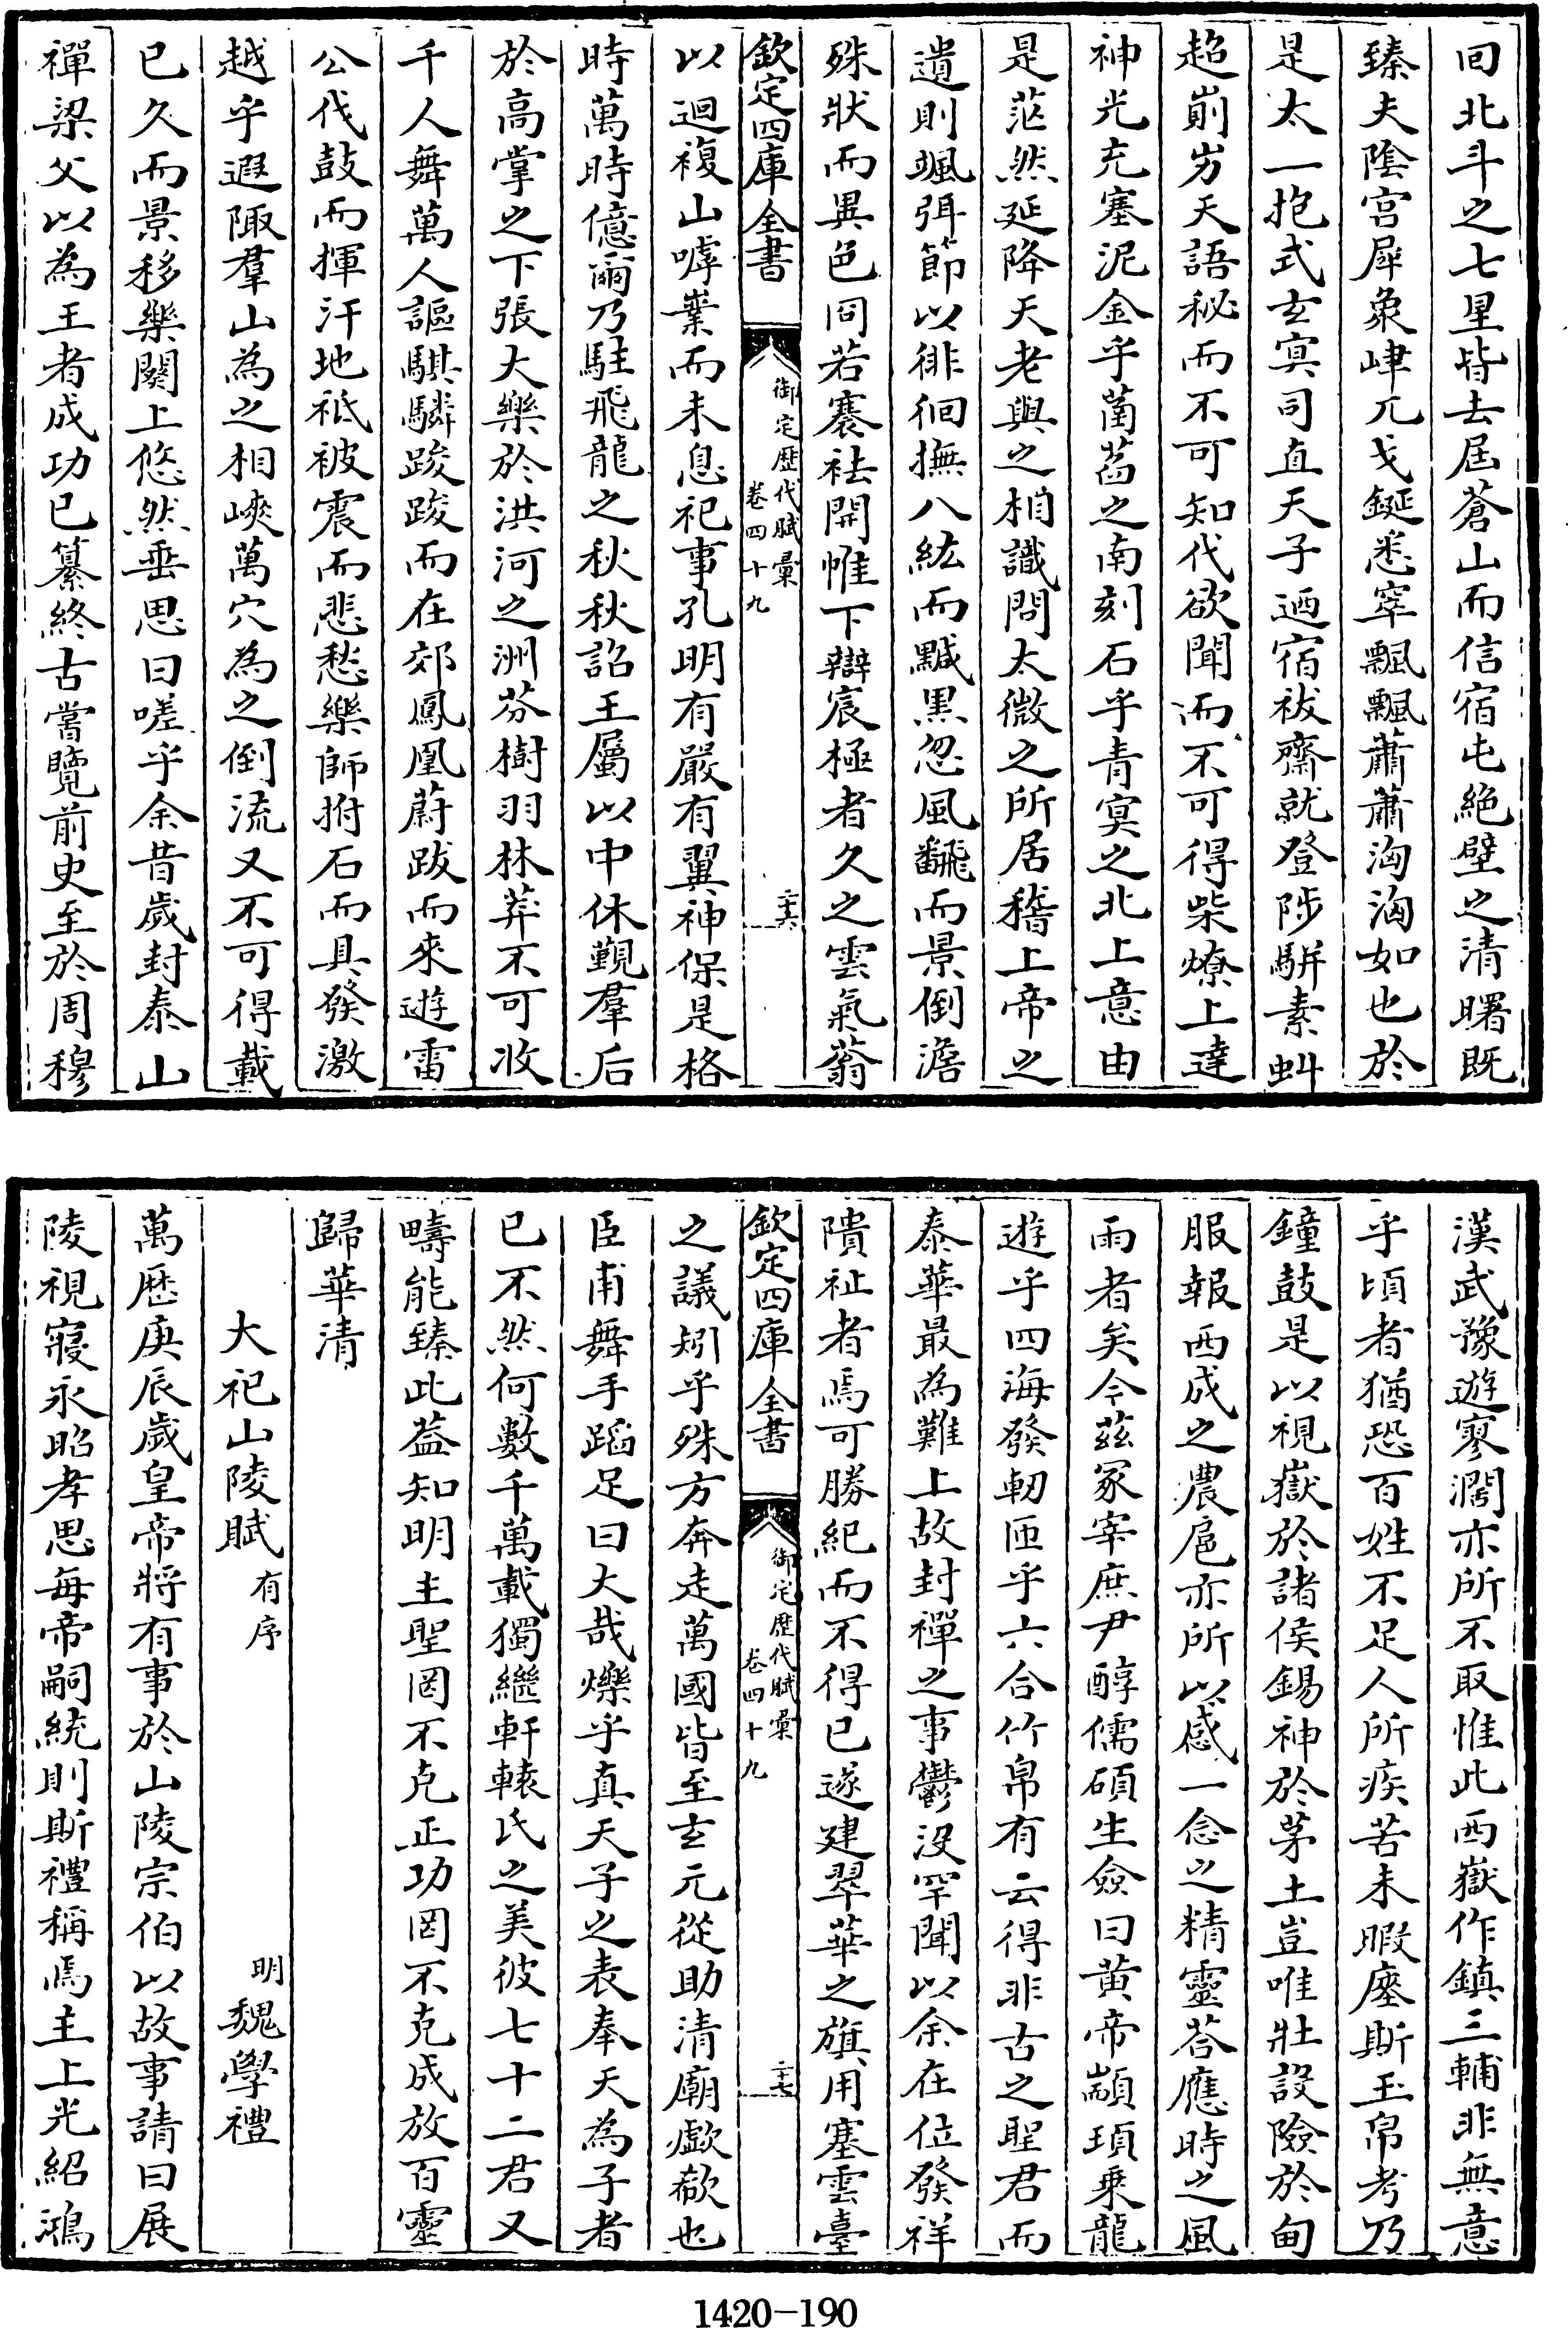 回北斗之七星皆去届蒼山而信宿屯絕壁之清曙既
臻夫陰宮犀象崒兀戈鋋悉窣飄飄蕭蕭洶洶如也於
是太一抱式玄冥司直天子迺宿祓齋就登陟駢素虯
超崱屴天語秘而不可知代欲聞而不可得柴燎上達
神光充塞泥金乎菡萏之南刻石乎青冥之北上意由
是茫然延降天老與之相識問太微之所居稽上帝之
遺則颯弭節以徘徊撫八紘而黬黑忽風翻而景倒澹
殊狀而異色冏若褰袪開帷下辯宸極者久之雲氣蓊
欽定四庫全書
御定歷代賦彙
卷四十九
二十六
以迴複山嘑業而未息祀事孔明有嚴有翼神保是格
時萬時億爾乃駐飛龍之秋秋詔王屬以中休覲羣后
於高掌之下張大樂於洪河之洲芬樹羽林莽不可收
千人舞萬人謳騏驎踆踆而在郊鳳凰蔚跂而來遊雷
公伐鼓而揮汗地祗被震而悲愁樂師拊石而具發激
越乎遐陬羣山為之相峽萬穴為之倒流又不可得載
已久而景移樂闋上悠然垂思曰嗟乎余昔歲封泰山
禪梁父以為王者成功已纂終古嘗覽前史至於周穆
漢武豫遊寥濶亦所不取惟此西嶽作鎮三輔非無意
乎頃者猶恐百姓不足人所疾苦未暇瘞斯玉帛考乃
鐘鼓是以視嶽於諸侯錫神於茅土豈唯壯設險於甸
服報西成之農扈亦所以感一念之精靈荅應時之風
雨者矣今茲冢宰庶尹醇儒碩生僉曰黄帝顓頊乗龍
遊乎四海發軔匝乎六合竹帛有云得非古之聖君而
泰華最為難上故封禪之事鬱没罕聞以余在位發祥
隤祉者焉可勝紀而不得已遂建翠華之旗用塞雲臺
欽定四庫全書
御定歷代賦彙
卷四十九
二十七
之議矧乎殊方奔走萬國皆至玄元從助清廟歔欷也
臣甫舞手蹈足曰大哉爍乎真天子之表奉天為子者
已不然何數千萬載獨繼軒轅氏之美彼七十二君又
疇能臻此葢知明主聖罔不克正功罔不克成放百靈
歸華清
大祀山陵賦 有序 明 魏學禮
萬歷庚辰歲皇帝將有事於山陵宗伯以故事請曰展
陵視寢永昭孝思每帝嗣統則斯禮稱焉主上光紹鴻
1420-190